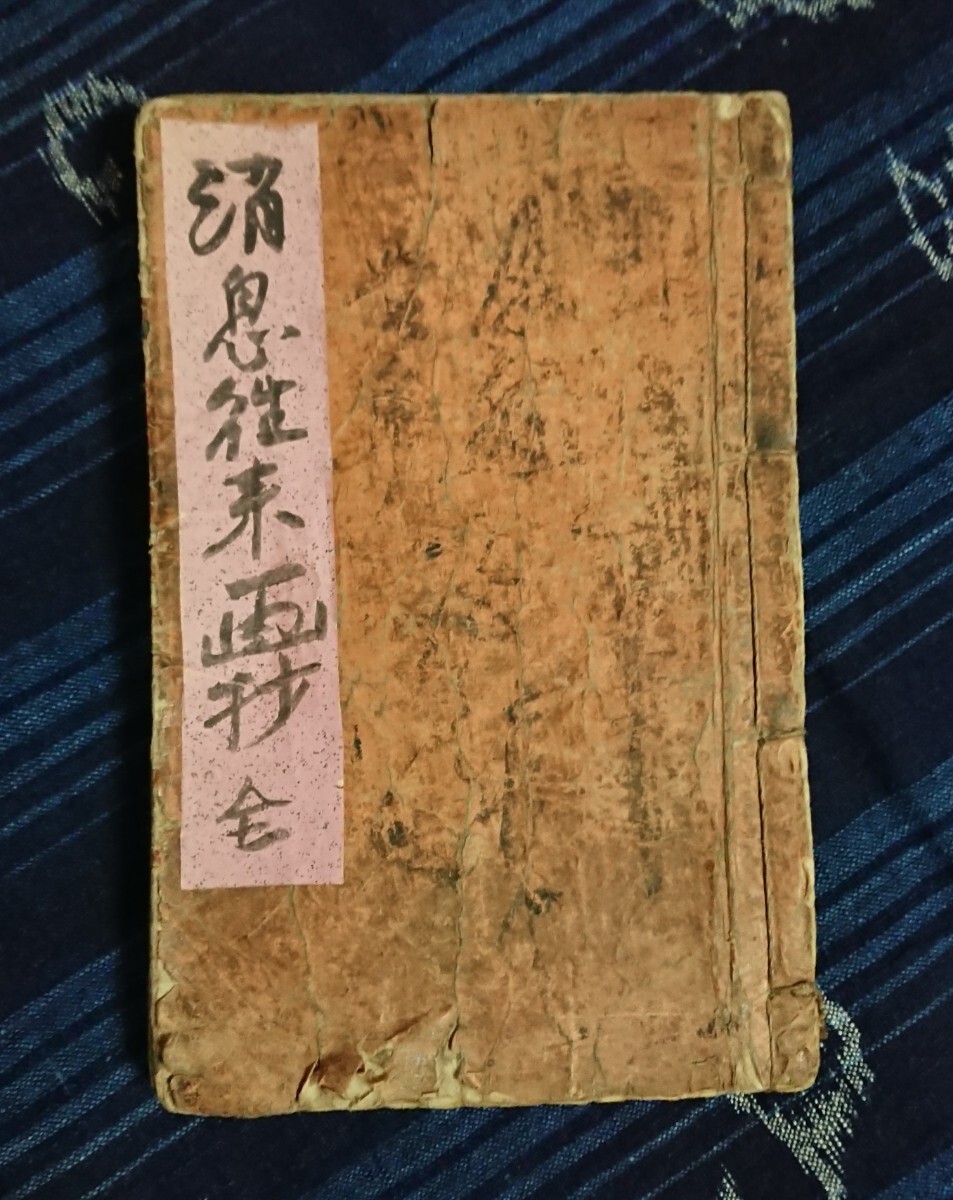 消息往来画抄 全